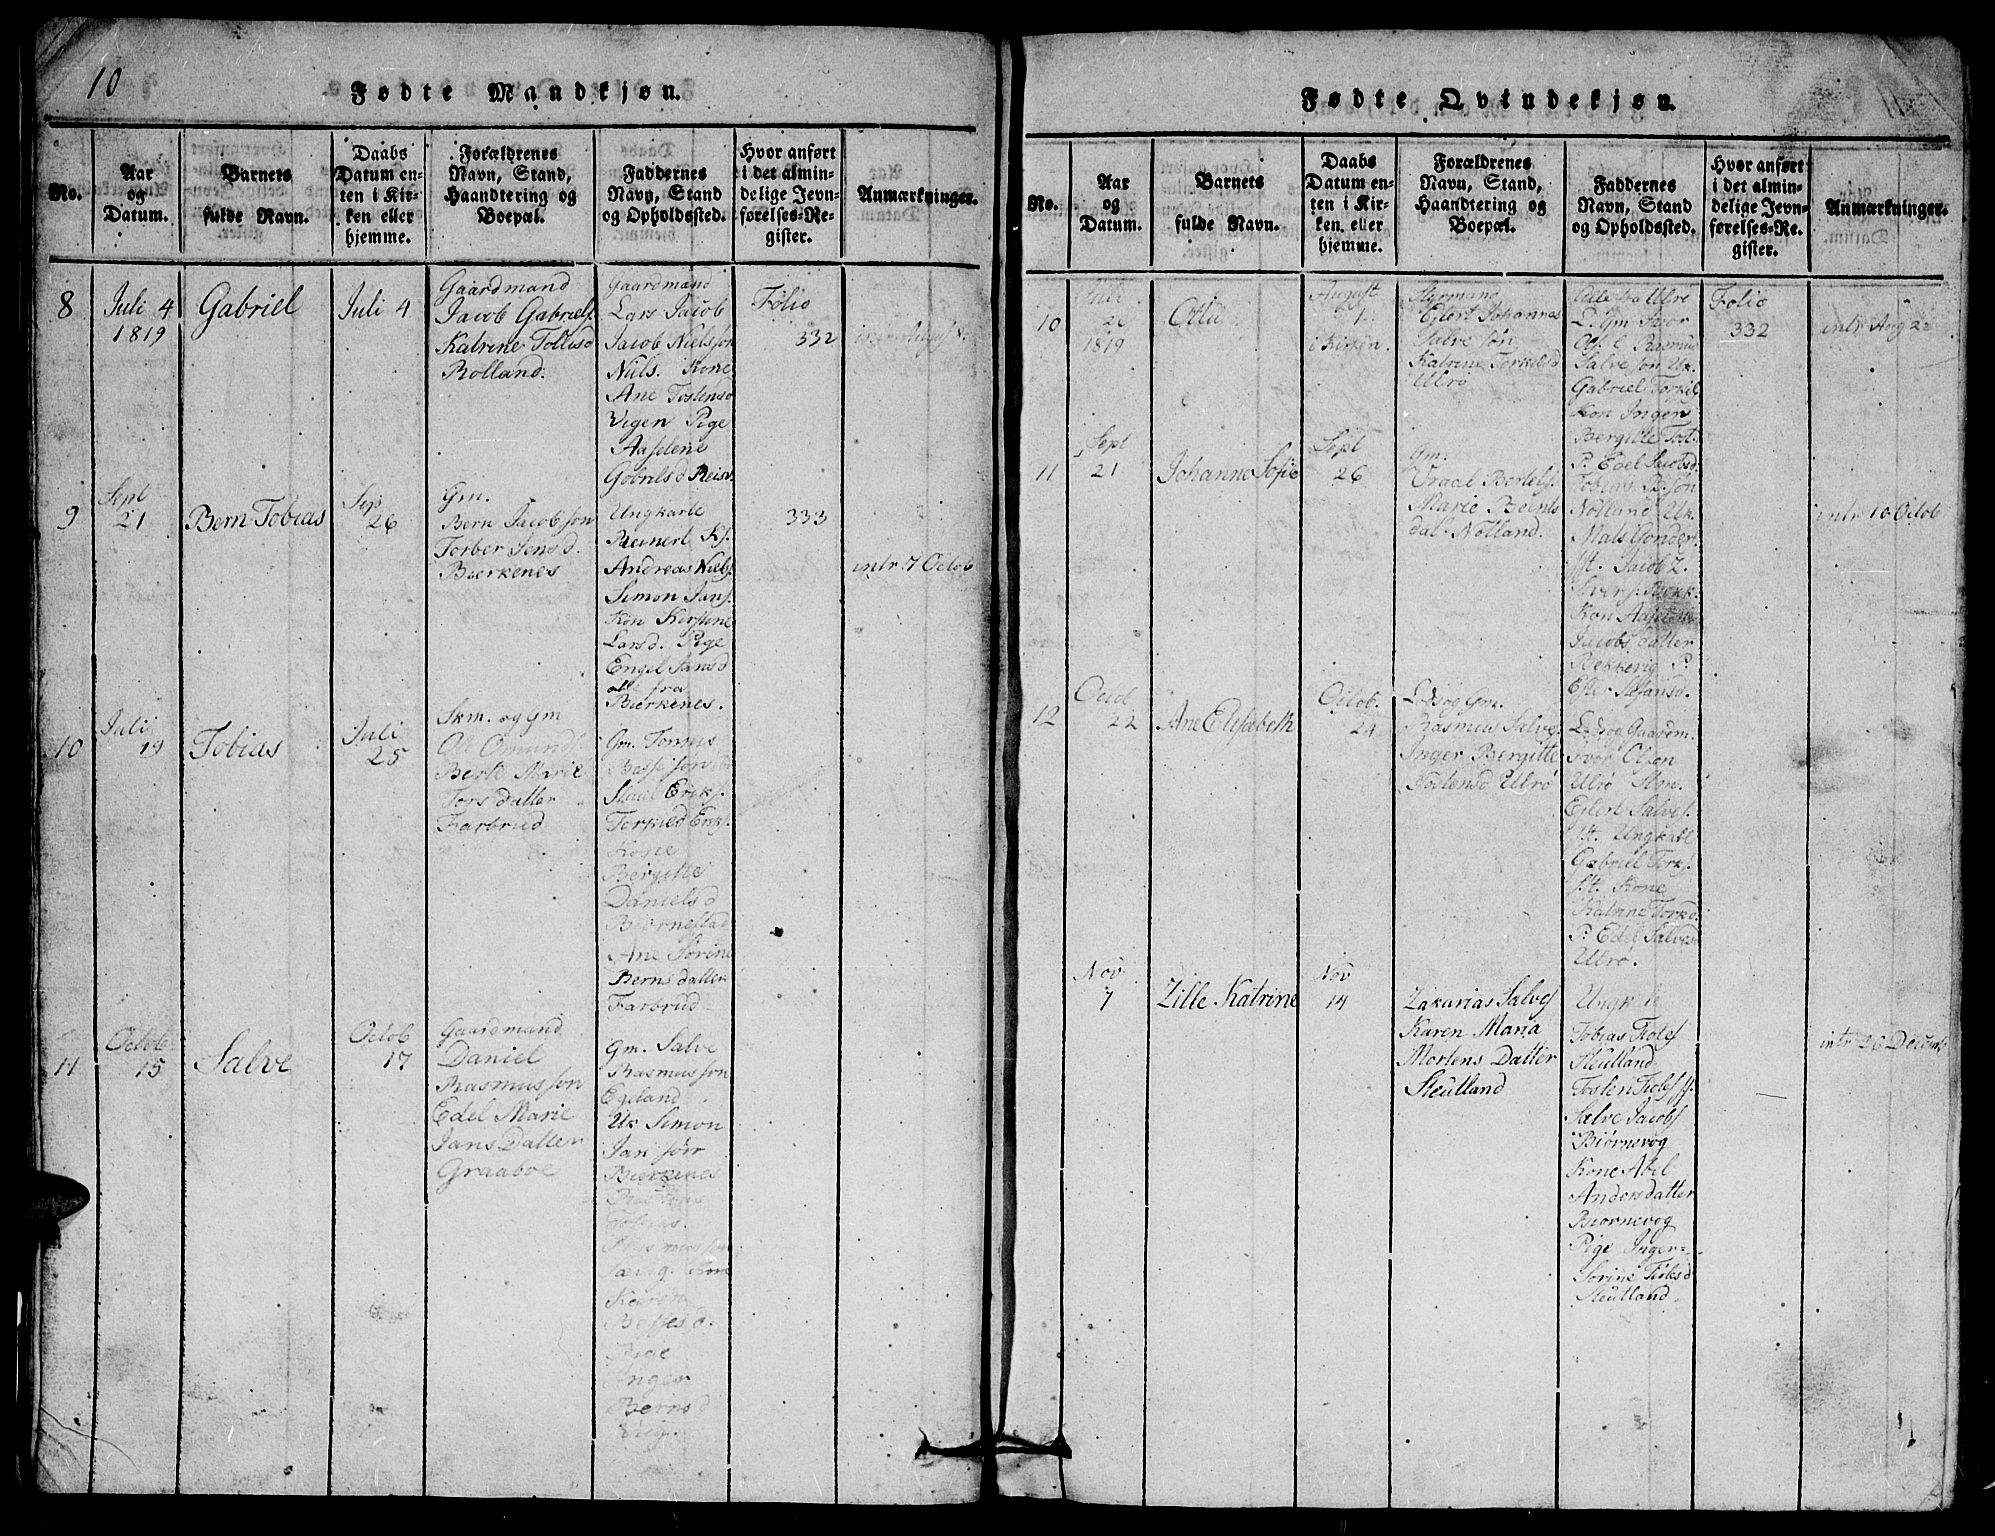 10
Fødte Mandkjøn.
No.
Aar
og
Datum.
Barnets
fulde Navn.
Daabs
Datum en-
ten i Kir-
ken eller
hjemme.
Forældrenes
Navn, Stand,
Haandtering og
Boepæl.
Faddernes
Navn, Stand
og Opholdssted.
Hvor anført
i det almin-
delige Jevn-
førelses-Re-
gister.
Anmærkninger.
8
Juli 4
1819
Gabriel
Juli 4
Gaardmand
Jacob Gabriels.
Katrine Tollisd
Rolland.
Gaardmand
Lars Jacob
Jacob Nielsson
Niels. Kone
Ane Tostensd
Vigen Pige
Aaselene
Gabrilsd Reisv
Folio
332
9
Sept
21
Bern Tobias
Sep
26
Gm.
Bern Jacobsson
Torber Jensd.
Bierkenes
Ungkarle
Reinert Ks.
Andreas Niels.
Simon Jans.
Kon Kirstene
Larsd. Pige
Engel Jansd
alle fra
Bierkenes.
333
intr 7 Octob
10
Juli
19
Tobias
Juli
25
Skm. og Gm
Ole Omunds.
Berte Marie
Torsdatter
Farbrud
Gm. Tomas
Basseson
Staul Eriks.
Torkild Erks.
Kone
Bergitte
Danielsd
Biørnestad
Ane Sørine
Bernsdatter
Farbrud
11
Octob
15
Salve
Octob
17
Gaardmand
Daniel
Rasmusson
Edel Marie
Jans Datter
Graaboe
Gm. Salve
Rasmusson
Egeland
Uk Simon
Jansøn
Bierkenes
Tobias.
Rasmusson
Kone
Karen
Bessesd.
Pige
Inger
Bernsd
Vig.
Fødte Qvindekjøn.
No.
Aar
og
Datum.
Barnets
fulde Navn.
Daabs
Datum en-
ten i Kir-
ken eller
hjemme.
Forældrenes
Navn, Stand,
Haandtering og
Boepæl.
Faddernes
Navn, Stand
og Opholdssted.
Hvor anført
i det almin-
delige Jevn-
førelses-Re-
gister.
Anmærkninger.
10
Juli
26
1819
August
1.
i Kirken.
Styrmand
Eilert Johannes
Salvesøn
Katrine Torkelsd
Ulrø
Alle fra Ulrø
L. Gm Ivor
Rasmus
Salvesøn Uk.
Gabriel Torkil
Kon Inger
Bergitte Tost.
P. Edel Jacobsd.
Folio
332
intr Aug 22
11
Sept
21
Johanne Sofie
Sept
26
Gm.
Vraal Bertels.
Marie Berents
dat. Notland.
Tobias B.søn
Notland Uk.
Mals Gonder.
st. Jacob Z.
Ivers. Rekk.
Kon Aaselene
Jacobsdatter
Rekkevig P.
Ester Stefansd.
intr 10 Octob
12
Octob
22
Ane Elisabeth
Octob.
24
Lods og Gm.
Rasmus Salves.
Inger Bergitte
Tostensd Ulrø
Lods og Gaardm.
Ivor Olsen
Ulrø Stm.
Eilert Salves.
st. Ungkarl
Gabriel Tork.
st. Kone
Katrine Torkd.
P. Edel Salvesd
Ulrø.
Nov
7
Zille Katrine
Nov
14
Zakarias Salves
Karen Maria
Mortens Datter
Steutland
Ungk
Tobias Tioles
Steutland
Tosten Tioles st.
Salve Jacobs
Biørnevog
Kone Abel
Andersdatter
Biørnevog
Pige Inger
Sorine Tiolesd
Steutland
intr 26 Decemb